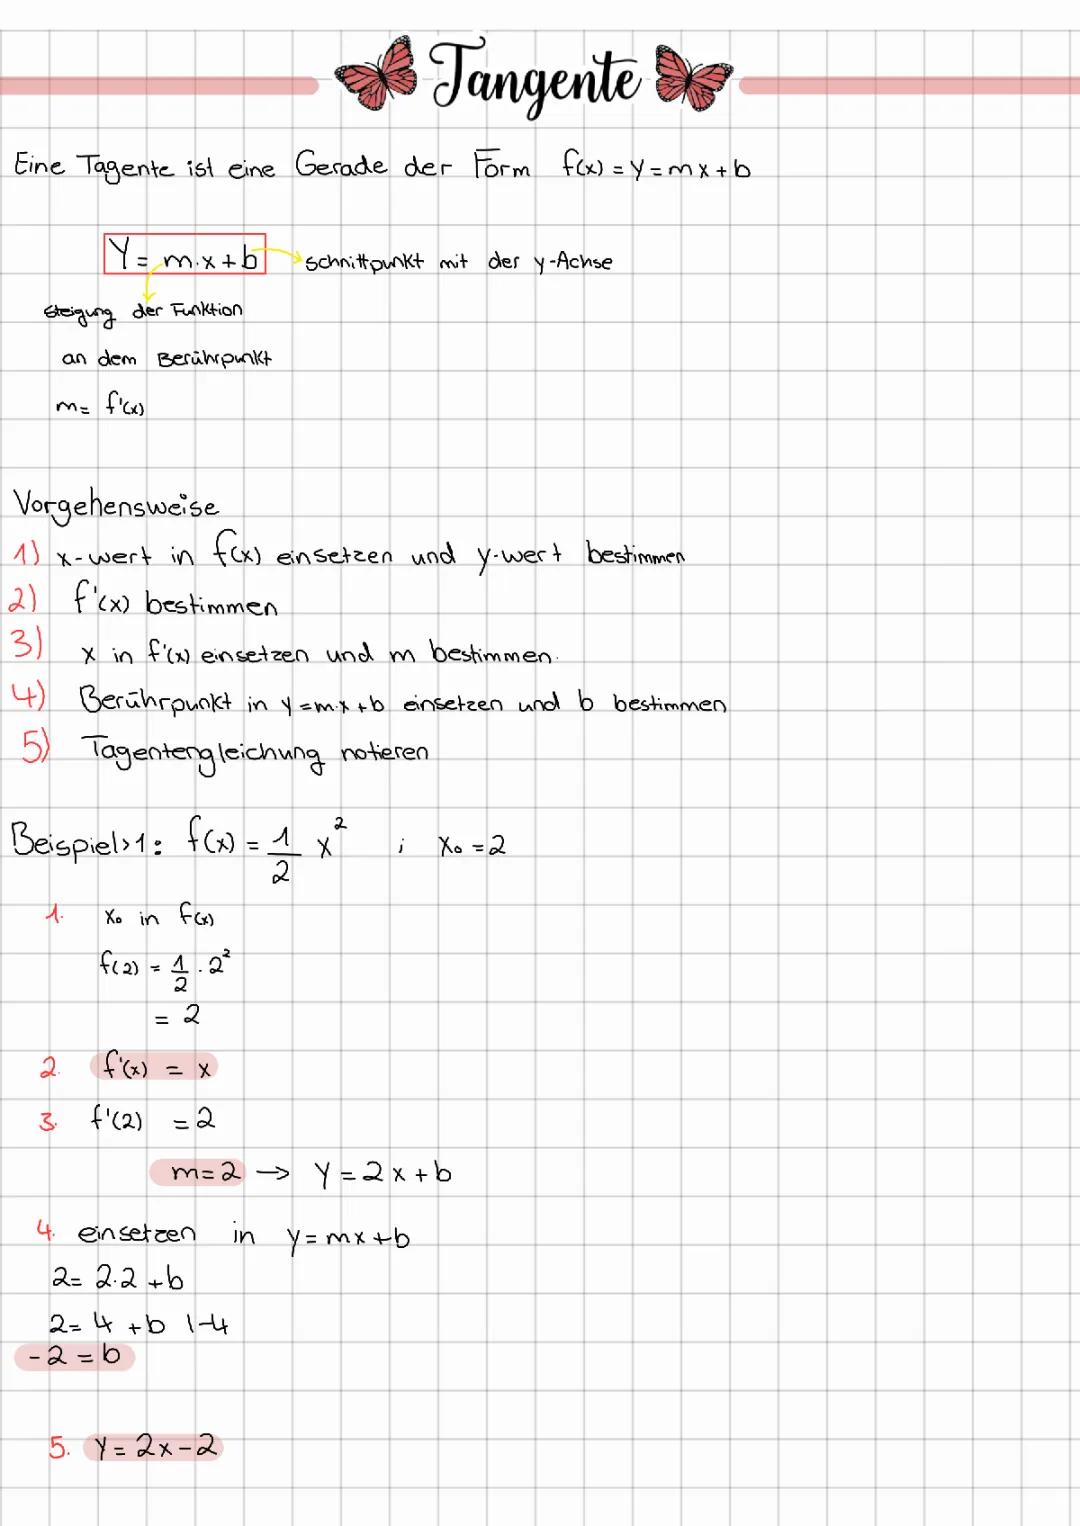 Tangente
Eine Tagente ist eine Gerade der Form f(x) = y = mx + b
Y = m·x + b schnittpunkt mit der y-Achse
steigung der Funktion
an dem Berührpunkt
m = f'(x)
Vorgehensweise
1) x-wert in f(x) einsetzen und y-wert bestimmen
2) f'(x) bestimmen
3) x in f'(x) einsetzen und m bestimmen.
4) Berührpunkt in y = m·x + b einsetzen und b bestimmen
5) Tagentengleichung notieren
Beispiel>1: f(x) = 1/2 x² ; x₀ = 2
1. x₀ in f(x)
f(2) = 1/2 · 2²
= 2
2. f'(x) = x
3. f'(2) = 2
m = 2 → Y = 2x + b
4. einsetzen in y = mx + b
2 = 2·2 + b
2 = 4 + b |-4
-2 = b
5. Y = 2x - 2